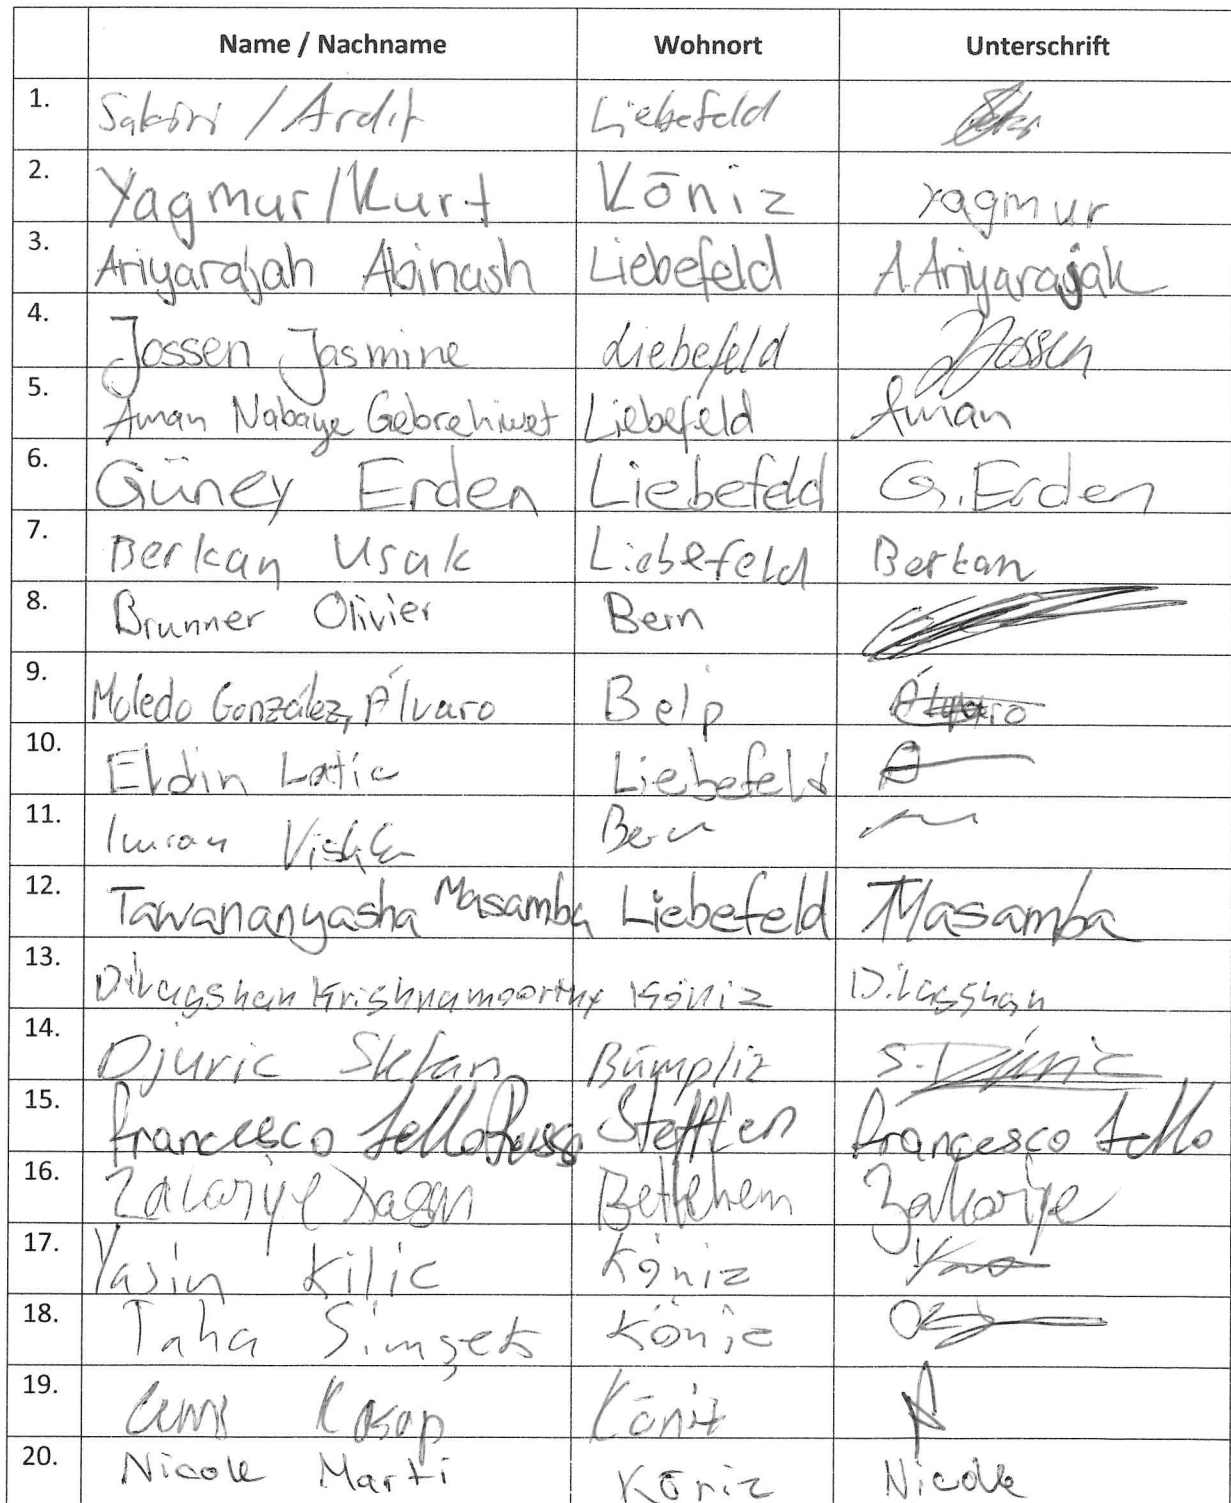 Name / Nachname Wohnort Unterschrift
1. Sakiri / Ardit Liebefeld
2. Yagmur/Kurt Köniz Yagmur
3. Ariyarajah Abinash Liebefeld A.Ariyarajah
4. Jossen Jasmine Liebefeld JJossen
5. Aman Nabaye Gebrehiwet Liebefeld Aman
6. Güney Erden Liebefeld G.Erden
7. Berkan Usak Liebefeld Berkan
8. Brunner Olivier Bern
9. Moledo González, Álvaro Belp Álvaro
10. Eldin Latic Liebefeld
11. Imran Bern
12. Tawananyasha Masamba Liebefeld TMasamba
13. Dilagshan Krishnamoorthy Köniz Dilagshan
14. Djuric Stefan Bümpliz S. Djuric
15. Francesco Steffien Francesco
16. Betlehem Zakariye
17. Yasin Kilic Köniz
18. Taha Simşek Köniz
19. Kasap Köniz
20. Nicole Marti Köniz Nicole